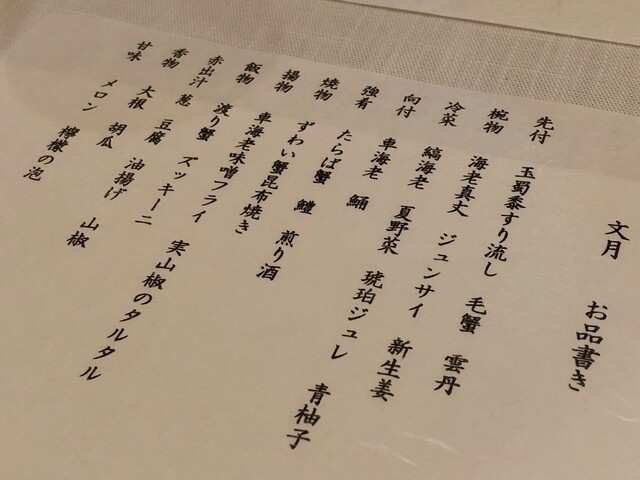 文月　お品書き
先付　玉蜀黍すり流し　毛蟹　雲丹
椀物　海老真丈　ジュンサイ　新生姜
冷菜　縞海老　夏野菜　琥珀ジュレ　青柚子
向付　車海老
強肴　たらば蟹　鱧　煎り酒
焼物　ずわい蟹昆布焼き
揚物　車海老味噌フライ　実山椒のタルタル
飯物　渡り蟹　ズッキーニ
赤出汁　葱　豆腐　油揚げ　山椒
香物　大根　胡瓜
甘味　メロン　檸檬の泡